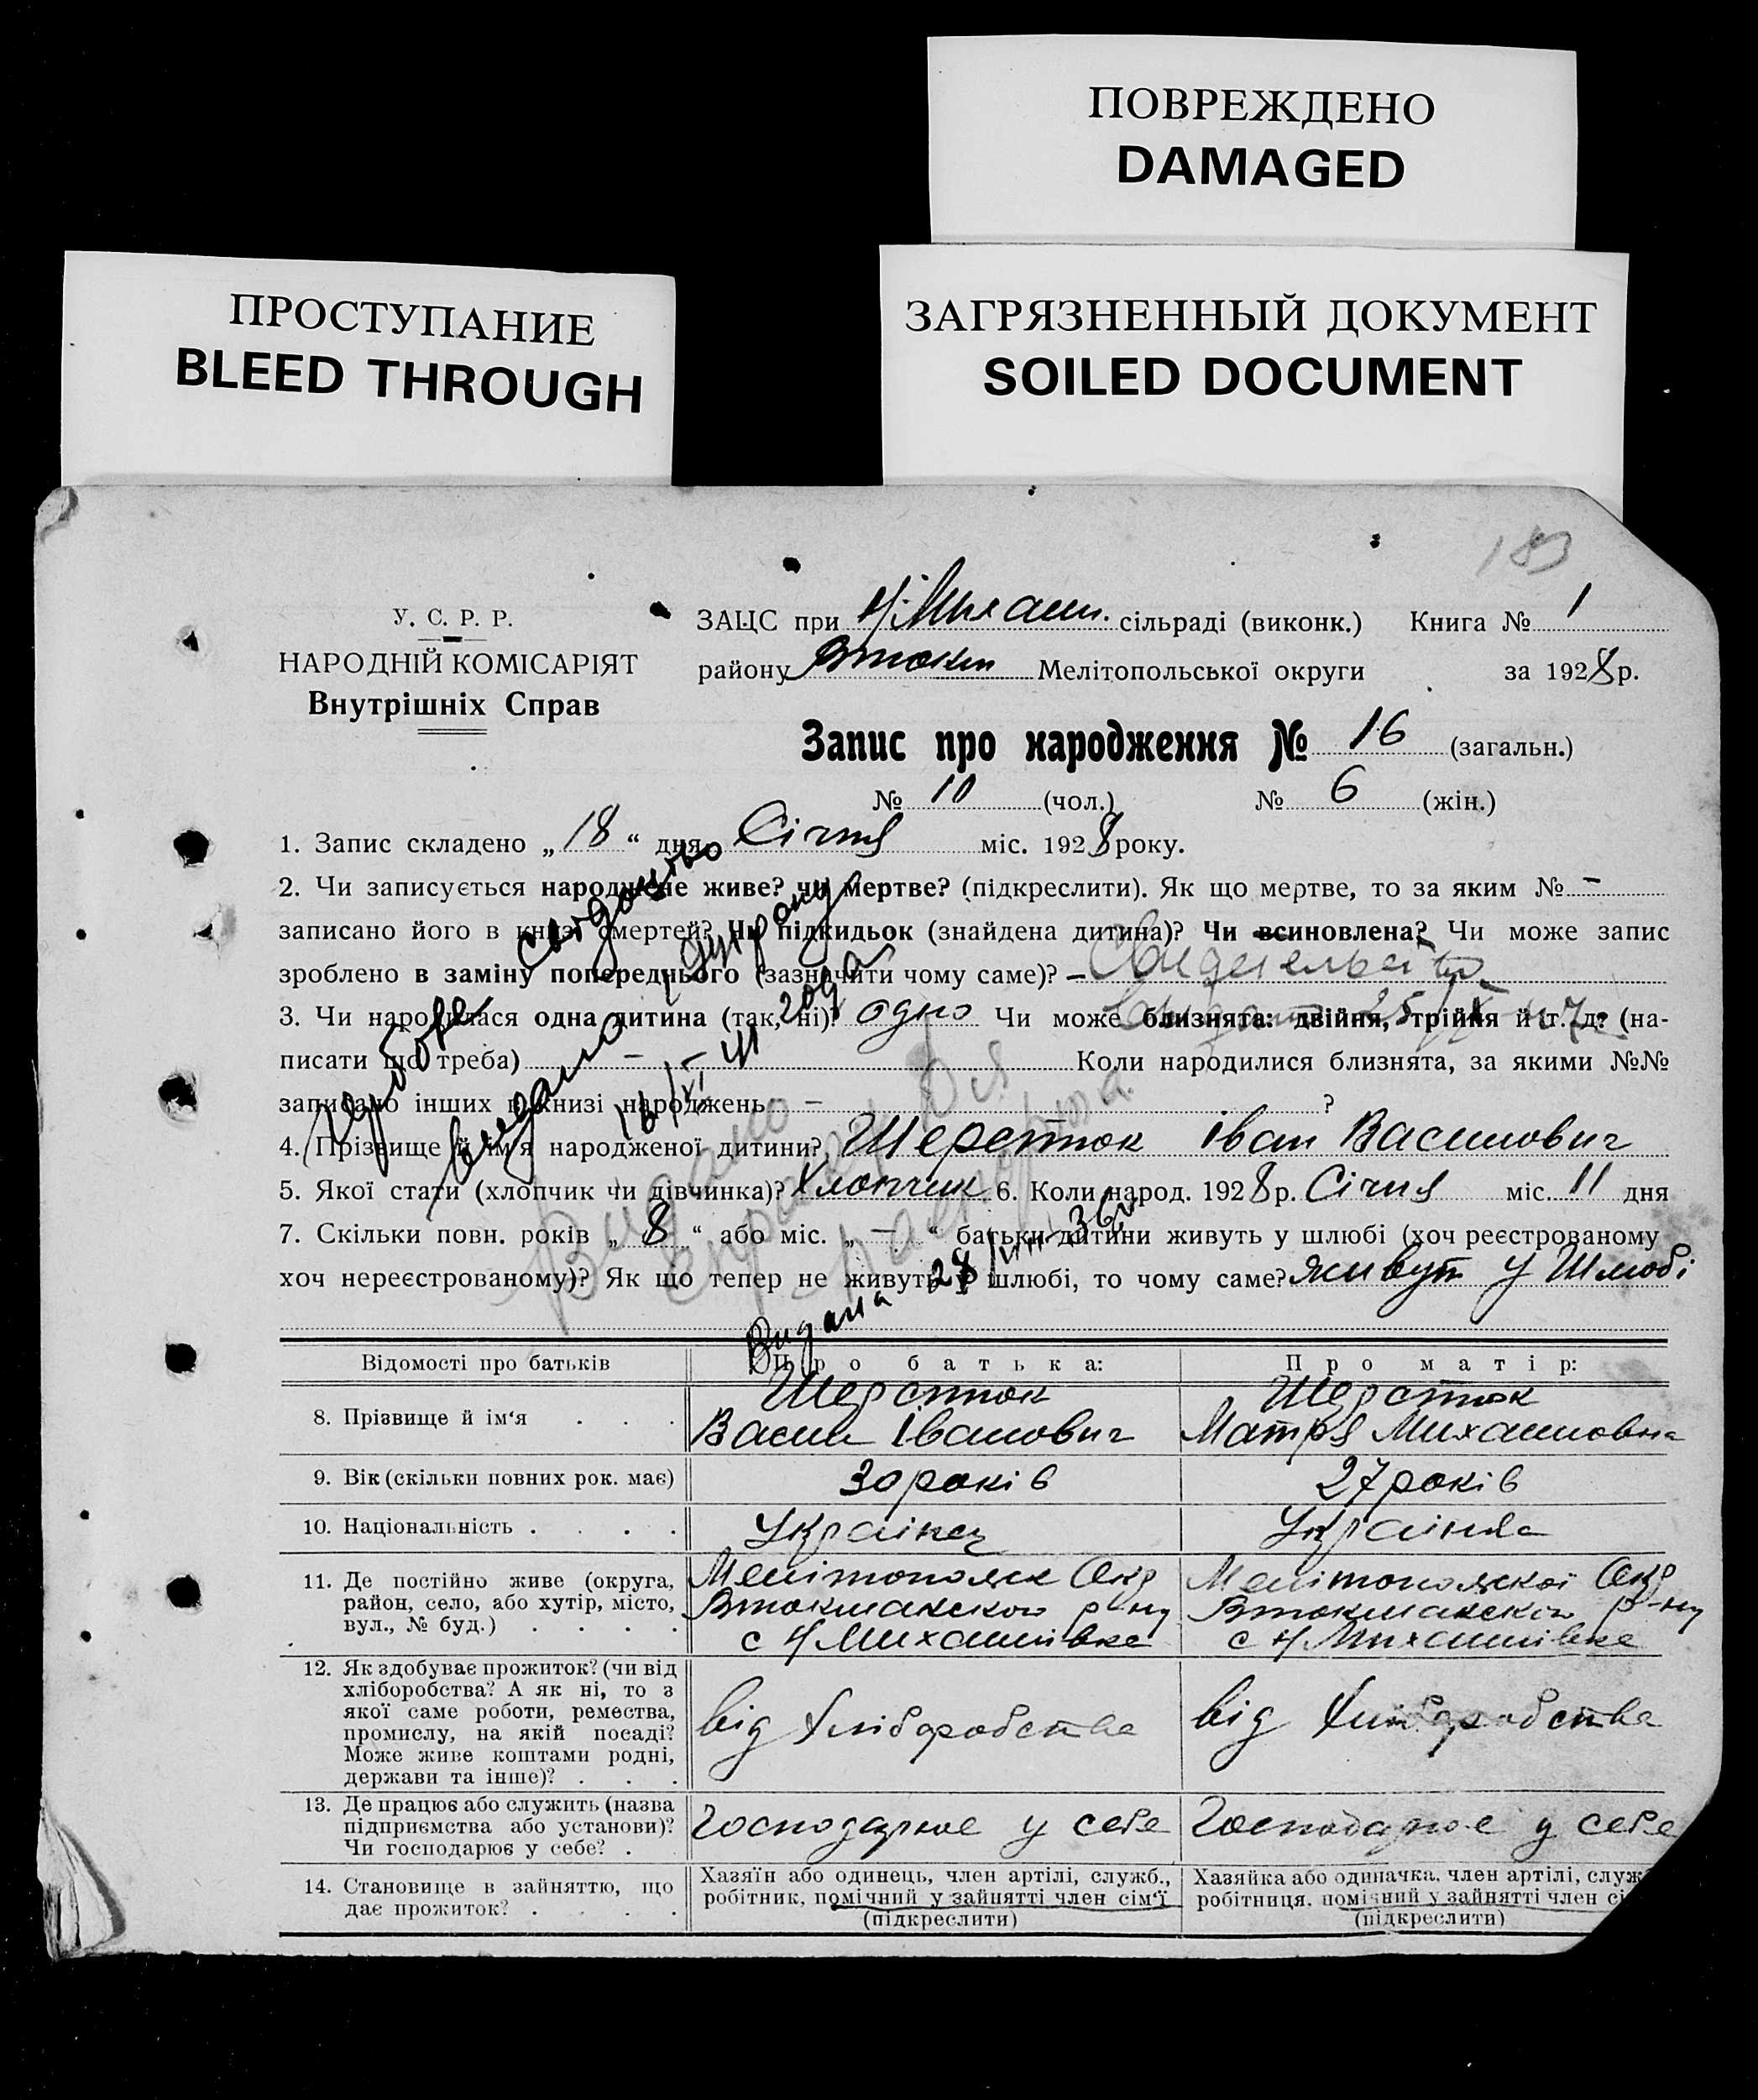 ПОВРЕЖДЕНО
DAMAGED
ПРОСТУПАНИЕ
BLEED THROUGH
ЗАГРЯЗНЕННЫЙ ДОКУМЕНТ
SOILED DOCUMENT
183
У. С. Р. Р.
НАРОДНІЙ КОМІСАРІЯТ
Внутрішніх Справ
ЗАЦС при Н-Михайл. сільраді (виконк.) Книга № 1
району Втокм Мелітопольської округи за 1928 р.
Запис про народження № 16 (загальн.)
№ 10 (чол.) № 6 (жін.)
1. Запис складено „18“ дня Січня міс. 1928 року.
2. Чи записується народжене живе? чи мертве? (підкреслити). Як що мертве, то за яким № –
записано його в книзі смертей? Чи підкидьок (знайдена дитина)? Чи всиновлена? Чи може запис
зроблено в заміну попереднього (зазначити чому саме)? –
3. Чи народилася одна дитина (так, ні)? одно Чи може близнята: двійня, трійня й т. д? (на-
писати що треба) – Коли народилися близнята, за якими №№
записано інших в книзі народжень –?
4. Прізвище й ім'я народженої дитини? Шерстюк Іван Василович
5. Якої стати (хлопчик чи дівчинка)? Хлопчик 6. Коли народ. 1928 р. Січня міс. 11 дня
7. Скільки повн. років „8“ або міс. „–“ батьки дитини живуть у шлюбі (хоч реєстрованому
хоч нереєстрованому)? Як що тепер не живуть у шлюбі, то чому саме? живут у Шлюбі
свідоцтво
выдано
16/XI-41 года
Видано
справку для
паспорта.
Видана 28/VIII-36р
Відомості про батьків Про батька: Про матір:
8. Прізвище й ім‘я . . . Шерстюк Василь Іванович Шерстюк Матря Михайловна
9. Вік (скільки повних рок. має) 30 років 27 років
10. Національність . . . . Українец Українка
11. Де постійно живе (округа, район, село, або хутір, місто, вул., № буд.) . . . .
Мелітопольск Окр Втокмакского р-ну с Н Михайлівке
Мелітопольскої Окр Втокмакского р-ну с Н Михайлівке
12. Як здобуває прожиток? (чи від хліборобства? А як ні, то з якої саме роботи, ремества, промислу, на якій посаді? Може живе коштами родні, держави та інше)? . . .
від Хліборобства
від Хліборобства
13. Де працює або служить (назва підприємства або установи)? Чи господарює у себе? .
Господарює у себе
Господарює у себе
14. Становище в зайняттю, що дає прожиток? . . . .
Хазяїн або одинець, член артілі, служб., робітник, помічний у зайнятті член сім‘ї (підкреслити)
Хазяйка або одиначка, член артілі, служ робітниця, помічний у зайнятті член сі (підкреслити)